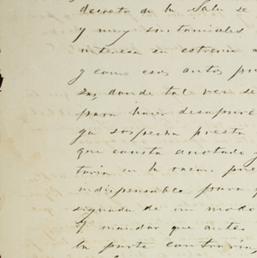 decreto de la Sala se
y muy sustanciales
interesa en estreria a
y como esos autos pue
sa, donde tal vez se
para hacer desaparec
ya sospecha presta
que consta anotado y
turia en la razon pue
indispensable para q
signada de un modo
y mandar que antes
la parte contraria,